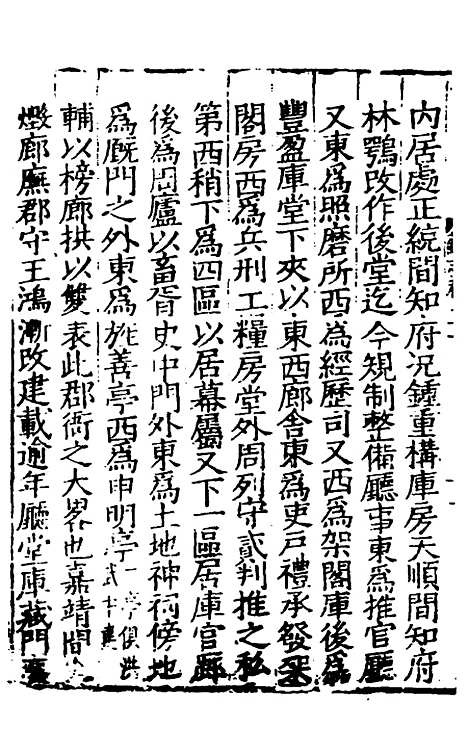 內居處正統間知府况鍾重構庫房天順間知府
林鶚改作後堂迄今規制整備廳事東爲推官廳
又東爲照磨所西爲經歷司又西爲架閣庫後爲
豐盈庫堂下夾以東西廊舍東爲吏戶禮承發架
閣房西爲兵刑工糧房堂外周列守貳判推之私
第西稍下爲四區以居幕屬又下一區居庫官
後爲廬以畜胥史中門外東爲土地神祠傍地
爲厩門之外東爲旌善亭西爲申明亭二亭俱洪武
輔以榜廊拱以雙表此郡衙之大畧也嘉靖間
燬廊廡郡守王鴻漸改建載逾年廳堂庫藏門